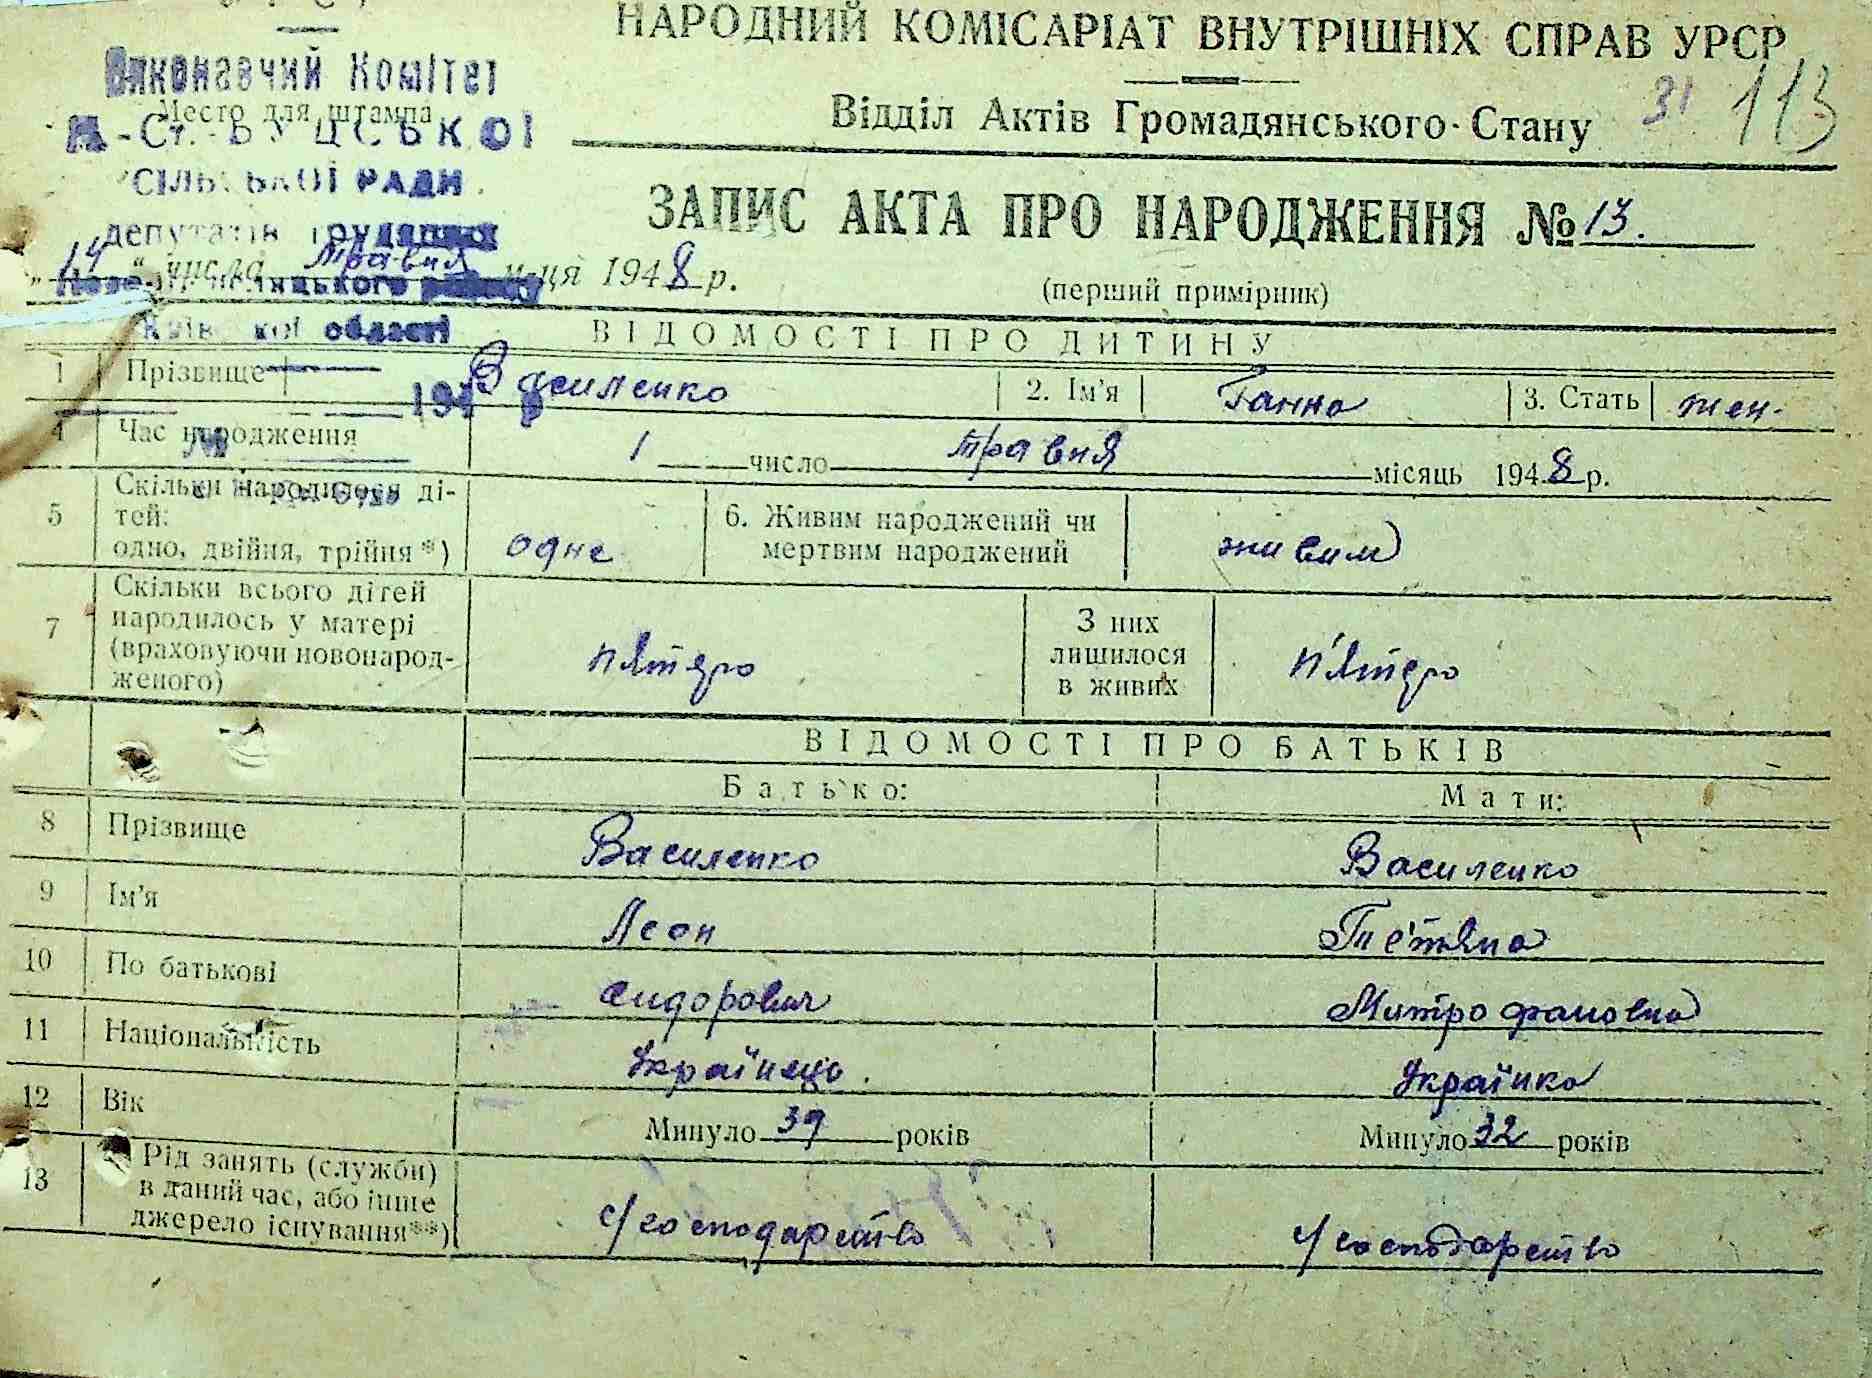 НАРОДНИЙ КОМІСАРІАТ ВНУТРІШНІХ СПРАВ УРСР
Виконавчий Комітет
Место для штампа
Відділ Актів Громадянського Стану
31 113
СІЛЬСЬКОЇ РАДИ
депутатів трудящих
ЗАПИС АКТА ПРО НАРОДЖЕННЯ № 13.
„14“ числа травня м-ця 1948 р.
(перший примірник)
області
ВІДОМОСТІ ПРО ДИТИНУ
1 Прізвище Василенко 2. Ім'я Ганна 3. Стать жен.
194
4 Час народження 1 число травня місяць 1948 р.
5 Скільки народилося ді-
тей:
одно, двійня, трійня*) одне
6. Живим народжений чи
мертвим народжений живим
7 Скільки всього дітей
народилось у матері
(враховуючи новонарод-
женого) п'ятеро
З них
лишилося
в живих п'ятеро
ВІДОМОСТІ ПРО БАТЬКІВ
Батько: Мати:
8 Прізвище Василенко Василенко
9 Ім'я Леон Тетяна
10 По батькові Сидорович Митрофановна
11 Національність Українець. Українка
12 Вік Минуло 39 років Минуло 32 років
13 Рід занять (служби)
в даний час, або інше
джерело існування**) с/господарство с/господарство